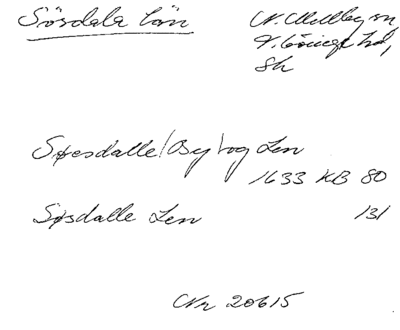 Sösdala län
N. Mellby sn,
V. Göinge hd,
Sk
Søesdalle/By/og Len
1633 KB 80
Søsdalle Len 131
Nr 20615